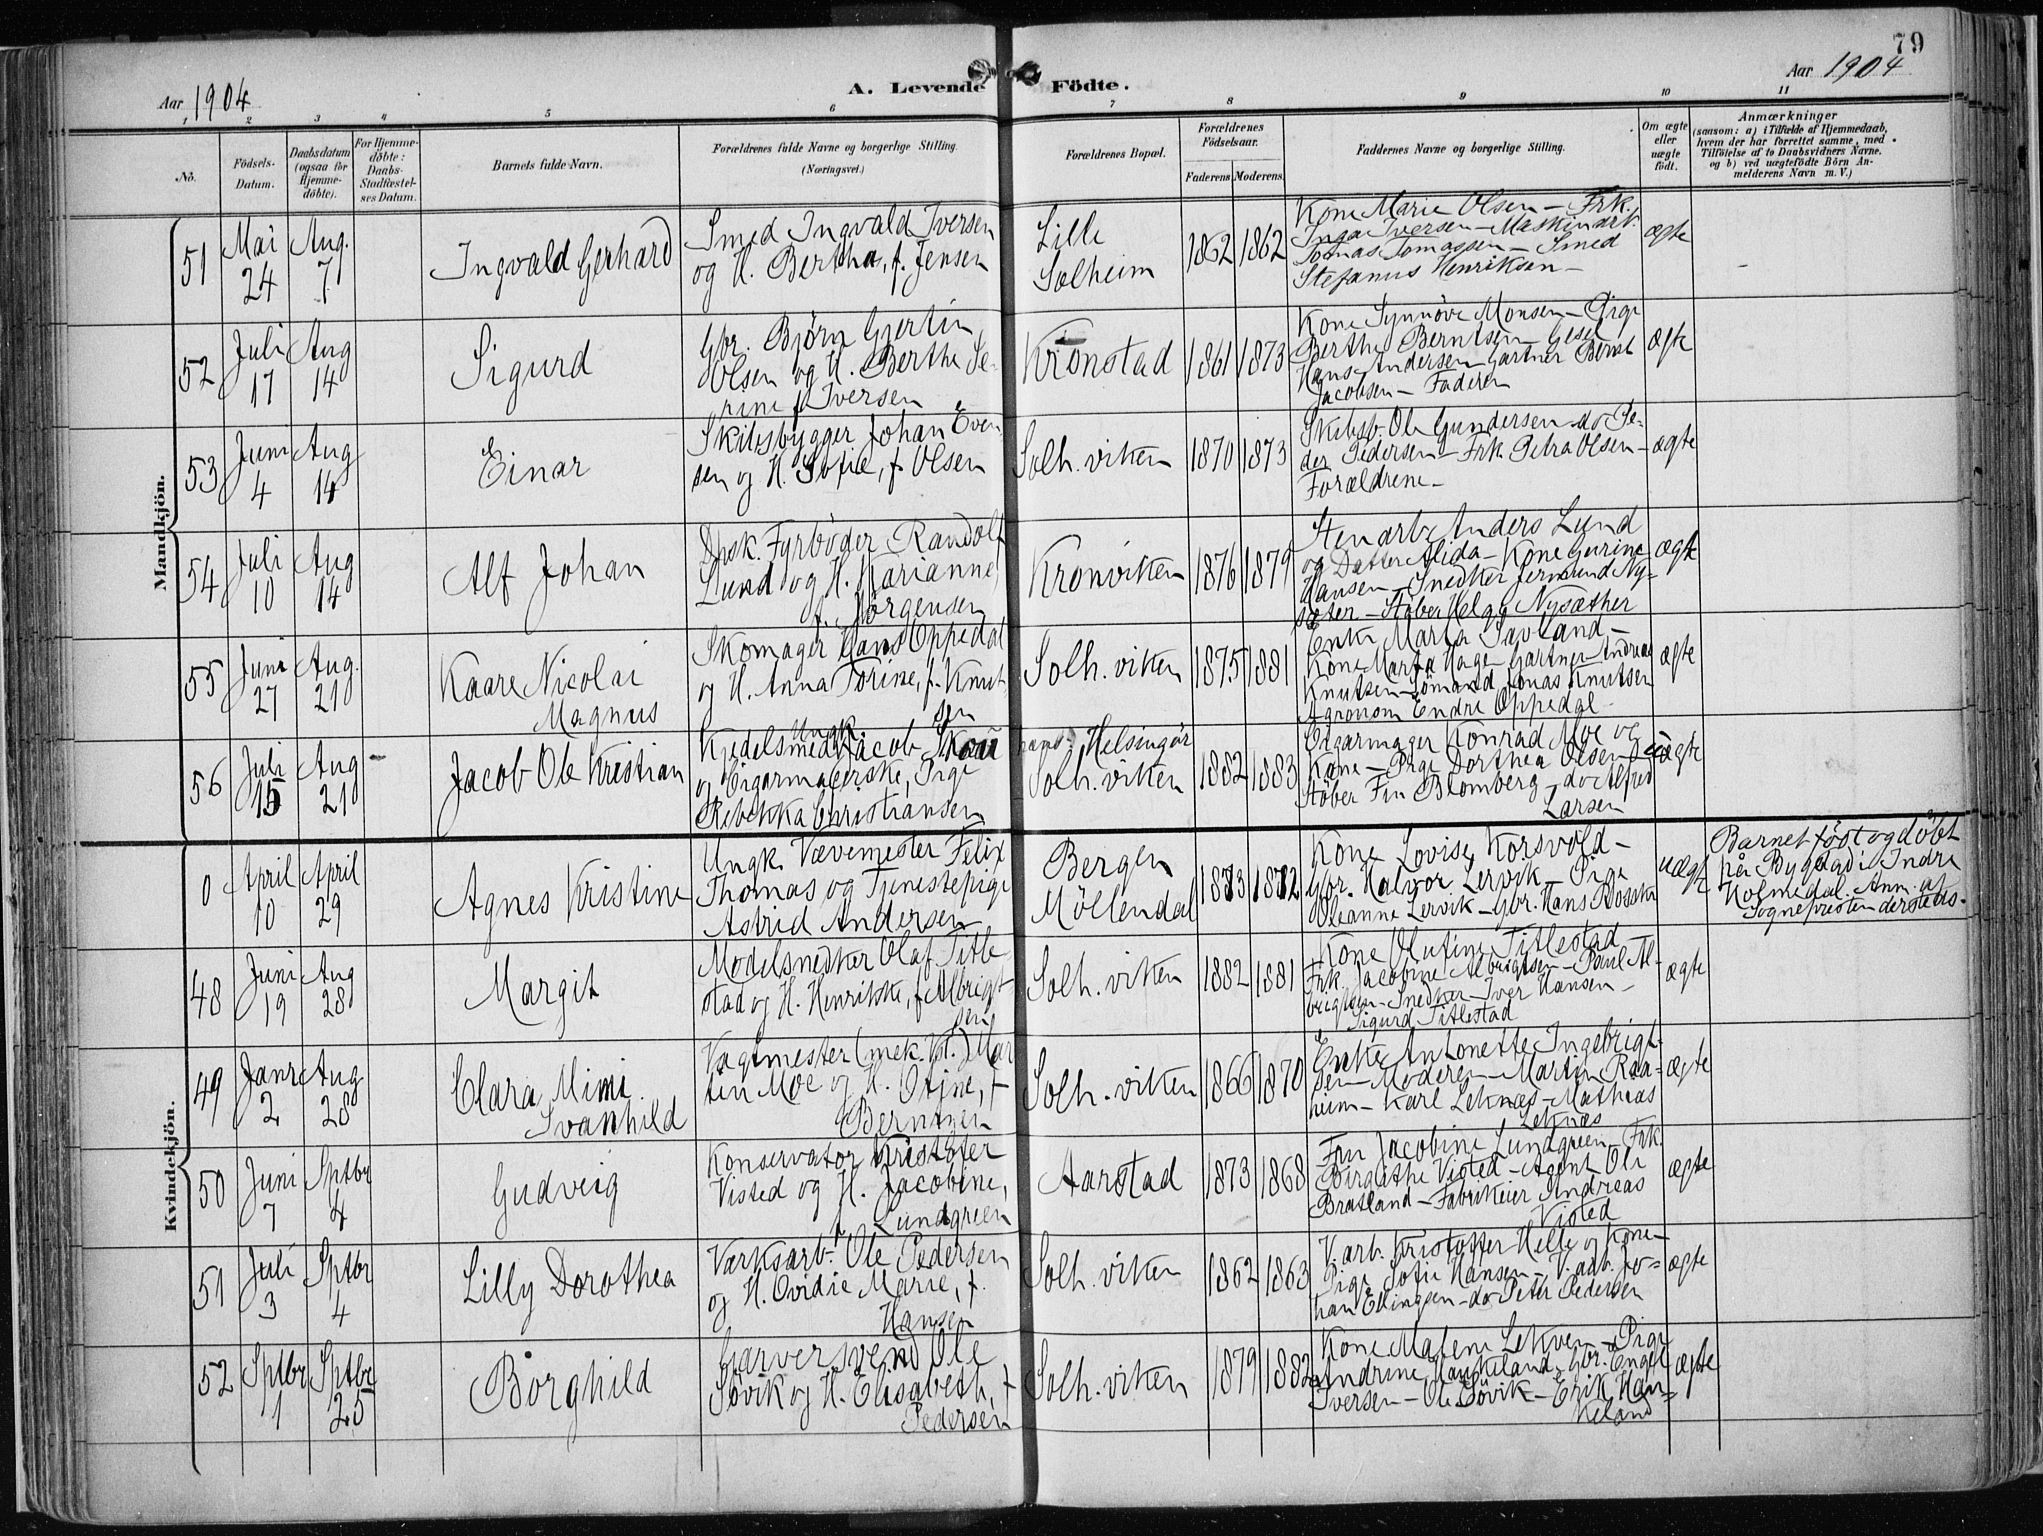 79
Aar 1904
A. Levende Födte.
Aar 1904
1 2 3 4 5 6 7 8 9 10 11
No.
Födsels-
Datum.
Daabsdatum
(ogsaa for
Hjemme-
döbte).
For Hjemme-
döbte:
Daabs-
Stadfæstel-
ses Datum.
Barnets fulde Navn.
Forældrenes fulde Navne og borgerlige Stilling.
(Næringsvei.)
Forældrenes Bopæl.
Forældrenes
Födselsaar.
Faderens Moderens.
Faddernes Navne og borgerlige Stilling.
Om ægte
eller
uægte
födt.
Anmærkninger
(saasom: a) i Tilfælde af Hjemmedaab,
hvem der har forrettet samme, med
Tilföielse af to Daabsvidners Navne.
og b) ved uægtefödte Börn An-
melderens Navn m. V.)
Mandkjön.
51
Mai
24
Aug.
7
Ingvald Gerhard
Smed Ingvald Iversen
og H. Bertha, f. Jensen
Lille
Solheim
1862 1862
Kone Marie Olsen – Frk.
Inga Iversen – Maskindrk.
Tomas Tomassen – Smed
Stefanus Henriksen –
ægte
52
Juli
17
Aug
14
Sigurd
Gbr. Björn Gjertin
Olsen og H. Berthe Se-
rine f. Iversen
Kronstad
1861 1873
Kone Synnöve Monsen – Pige
Berthe Berntsen – Gesel
Hans Andersen – Gartner Bernt
Jacobsen – Faderen
ægte
53
Juni
4
Aug
14
Einar
Skibsbygger Johan Even-
sen og H. Sofie, f. Olsen
Solh. viken
1870 1873
Skibsb. Ole Gundersen – do Pe-
der Pedersen – Frk. Petra Olsen –
Forældrene –
ægte
54
Juli
10
Aug
14
Alf Johan
Dpsk. Fyrbøder Randolf
Lund og H. Marianne
f. Jörgensen
Kronviken
1876 1879
Stenarb. Anders Lund
og Datter Alida – Kone Gurine
Hansen – Snedker Jermund Ny-
sæter – Støber Helge Nysæther
ægte
55
Juni
27
Aug.
21
Kaare Nicolai
Magnus
Skomager Hans Oppedal
og H. Anna Torine, f. Knut-
sen
Solh. viken
1875 1881
Enke Marta Tavland –
Kone Marta Hage – Gartner Andreas
Knutsen – Sömand Jonas Knutsen
Agronom Endre Oppedal –
ægte
56
Juli
15
Aug
21
Jacob Ole Kristian
Ungk.
Kjedelsmed Jacob Skou
og Cigarmagerske, Pige
Rebekka Christiansen
hans: Helsingör
Solh. viken
1882 1883
Cigarmager Konrad Moe og
Kone – Pige Dorthea Olsen
Støber Fin Blomberg – do Alfred
Larsen
uægte
Kvindekjön.
0
April
10
April
29
Agnes Kristine
Ungk. Vævemester Felix
Thomas og Tjenestepige
Astrid Andersen
Bergen
Möllendal
1873 1872
Kone Lovise Korsvold –
Gbr. Halvor Lervik – Pige
Oleanne Lervik – Gbr. Hans
uægte
Barnet födt og döbt
på Bygstad i Indre
Holmedal. Anm. af
Sognepresten dersteds.
48
Juni
19
Aug
28
Margit
Modelsnedker Olaf Title-
stad og H. Henrikke, f. Albrigt-
sen
Solh. viken
1882 1881
Kone Olufine Titlestad
Frk. Jacobine Albrigtsen – Paul Al-
brigtsen – Snedker Iver Hansen –
Sigurd Titlestad
ægte
49
Janr.
2
Aug
28
Clara Mimi
Svanhild
Vagtmester (mek. Vst.) Mar-
tin Moe og H. Otine, f.
Berntzen
Solh. viken
1866 1870
Enke Antonette Ingebrigt-
sen – Moderen – Martin Raa-
heim – Karl Leknæs – Mathias
Leknæs
ægte
50
Juni
7
Sptbr
4
Gudveig
Konservator Kristofer
Visted og H. Jacobine,
f. Lundgreen
Aarstad
1873 1868
Fru Jacobine Lundgreen – Frk.
Birgithe Visted – Agent Ole
Bratland – Fabrikeier Andreas
Visted
ægte
51
Juli
3
Sptbr
4
Lilly Dorothea
Værksarb. Ole Pedersen
og H. Ovidie Marie, f.
Hansen
Solh. viken
1862 1863
V. arb. Kristoffer Helle og Kone –
Pige Sofie Hansen – V. arb. Jo-
han Ellingsen – do Peter Pedersen
ægte
52
Sptbr
1
Sptbr
25
Borghild
Garversvend Ole
Søvik og H. Elisabeth, f.
Pedersen
Solh. viken
1879 1882
Kone Malene Lekven – Pige
Andrine Haukeland – Gbr. Engel
Iversen – Ole Søvik – Erik Hau-
keland
ægte